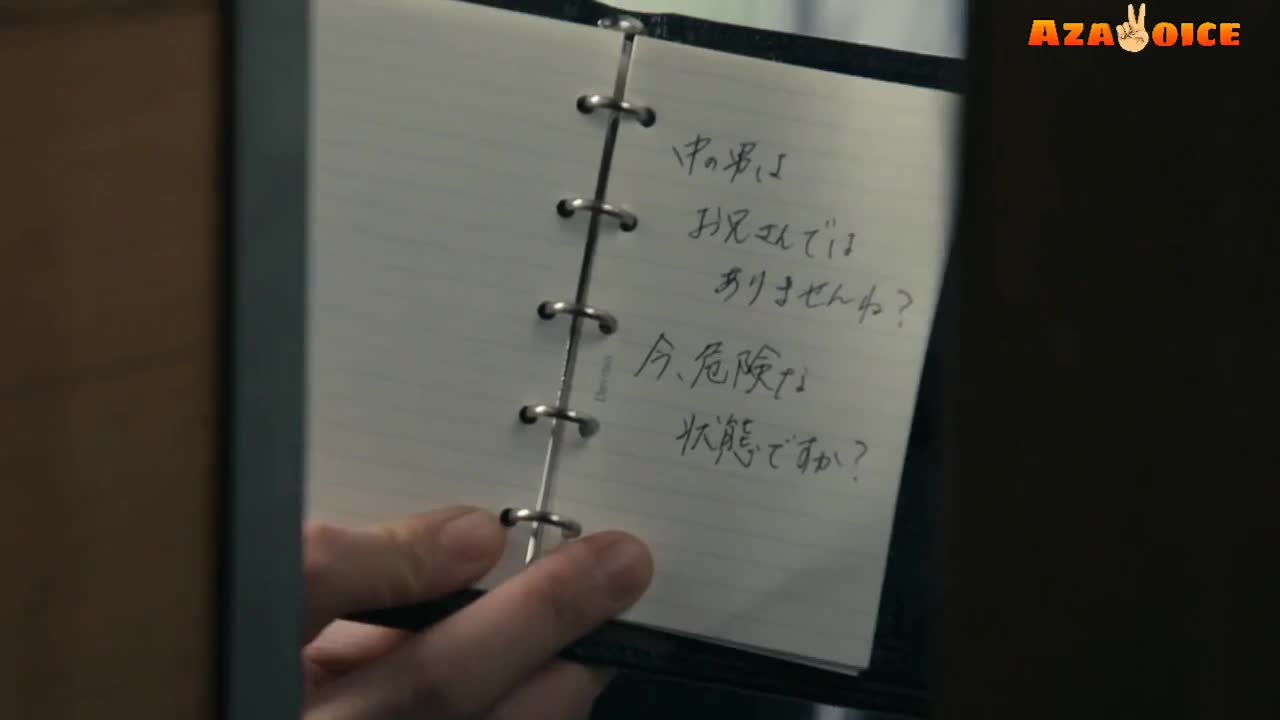 AZAVOICE
中の男は
お兄さんでは
ありませんね?
今、危険な
状態ですか?
Davinci